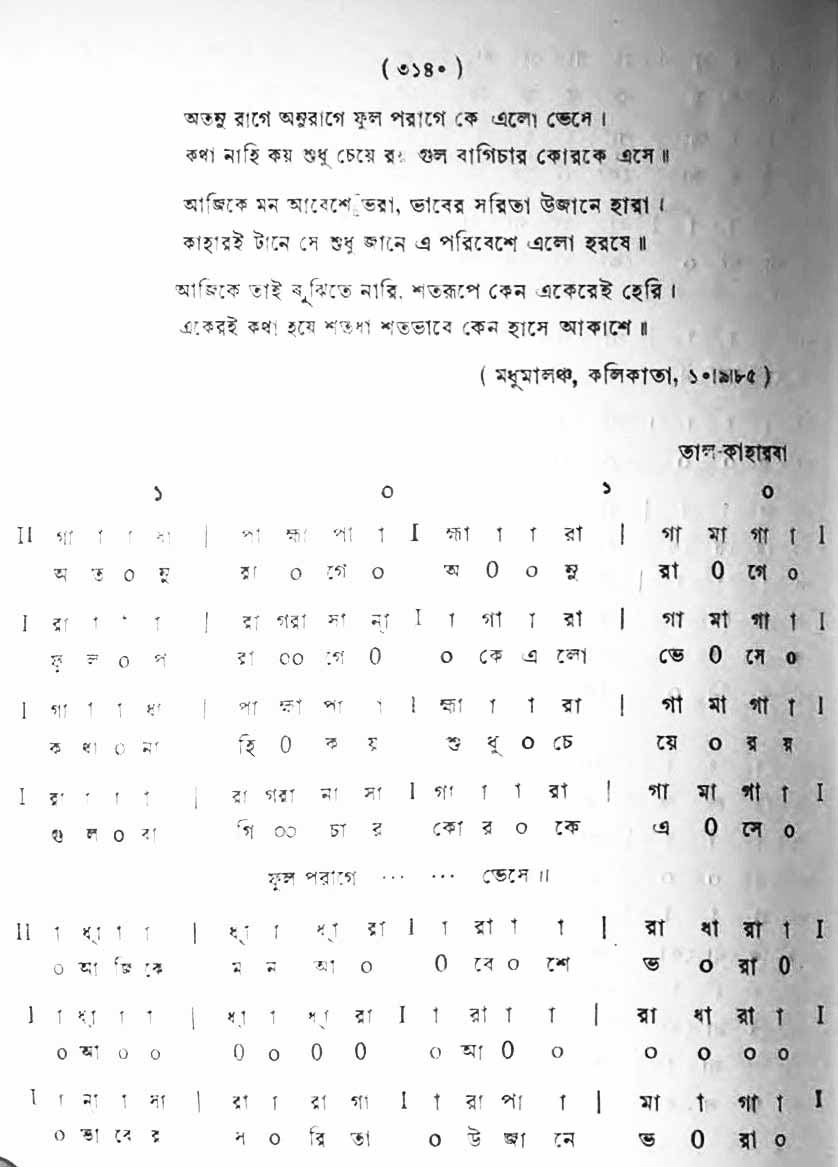 ( ৩১৪০ )
অতনু রাগে অনুরাগে ফুল পরাগে কে এলো ভেসে ।
কথা নাহি কয় শুধু চেয়ে রয় গুল বাগিচার কোরকে এসে ॥
আজিকে মন আবেশে ভরা, ভাবের সরিতা উজানে হারা ।
কাহারই টানে সে শুধু জানে এ পরিবেশে এলো হরষে ॥
আজিকে তাই বুঝিতে নারি, শতরূপে কেন একেরেই হেরি ।
একেরই কথা হযে শতধা শতভাবে কেন হাসে আকাশে ॥
( মধুমালঞ্চ, কলিকাতা, ১০।৯।৮৫ )
তাল-কাহারবা
১ ০ ১ ০
II গা া া ধা | পা হ্মা পা া I হ্মা া া রা | গা মা গা া I
অ ত ০ নু রা ০ গে ০ অ 0 ০ নু রা 0 গে ০
I রা া া া | রা গরা সা ন্া I া গা া রা | গা মা গা া I
ফু ল ০ প রা ০০ গে 0 ০ কে এ লো ভে 0 সে ০
I গা া া ধা | পা হ্মা পা া I হ্মা া া রা | গা মা গা া I
ক থা ০ না হি 0 ক য় শু ধু ০ চে য়ে ০ র য়
I রা া া া | রা গরা না সা I গা া া রা | গা মা গা া I
গু ল ০ বা গি ০০ চা র কো র ০ কে এ 0 সে ০
ফুল পরাগে ··· ··· ভেসে ॥
II া ধ্া া া | ধ্া া ধ্া রা I া রা া া | রা ধা রা া I
০ আ জি কে ম ন আ ০ 0 বে ০ শে ভ ০ রা 0
I া ধ্া া া | ধ্া া ধ্া রা I া রা া া | রা ধা রা া I
০ আ ০ ০ 0 ০ 0 0 ০ আ 0 ০ ০ ০ ০ ০
I া না া সা | রা া রা গা I া রা পা া | মা া গা া I
০ ভা বে র স ০ রি তা ০ উ জা নে ভ 0 রা ০